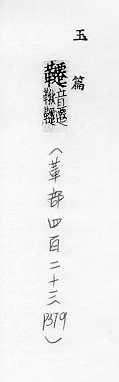 玉篇
韆音遷
鞦韆
(革部四百二十三 P379)